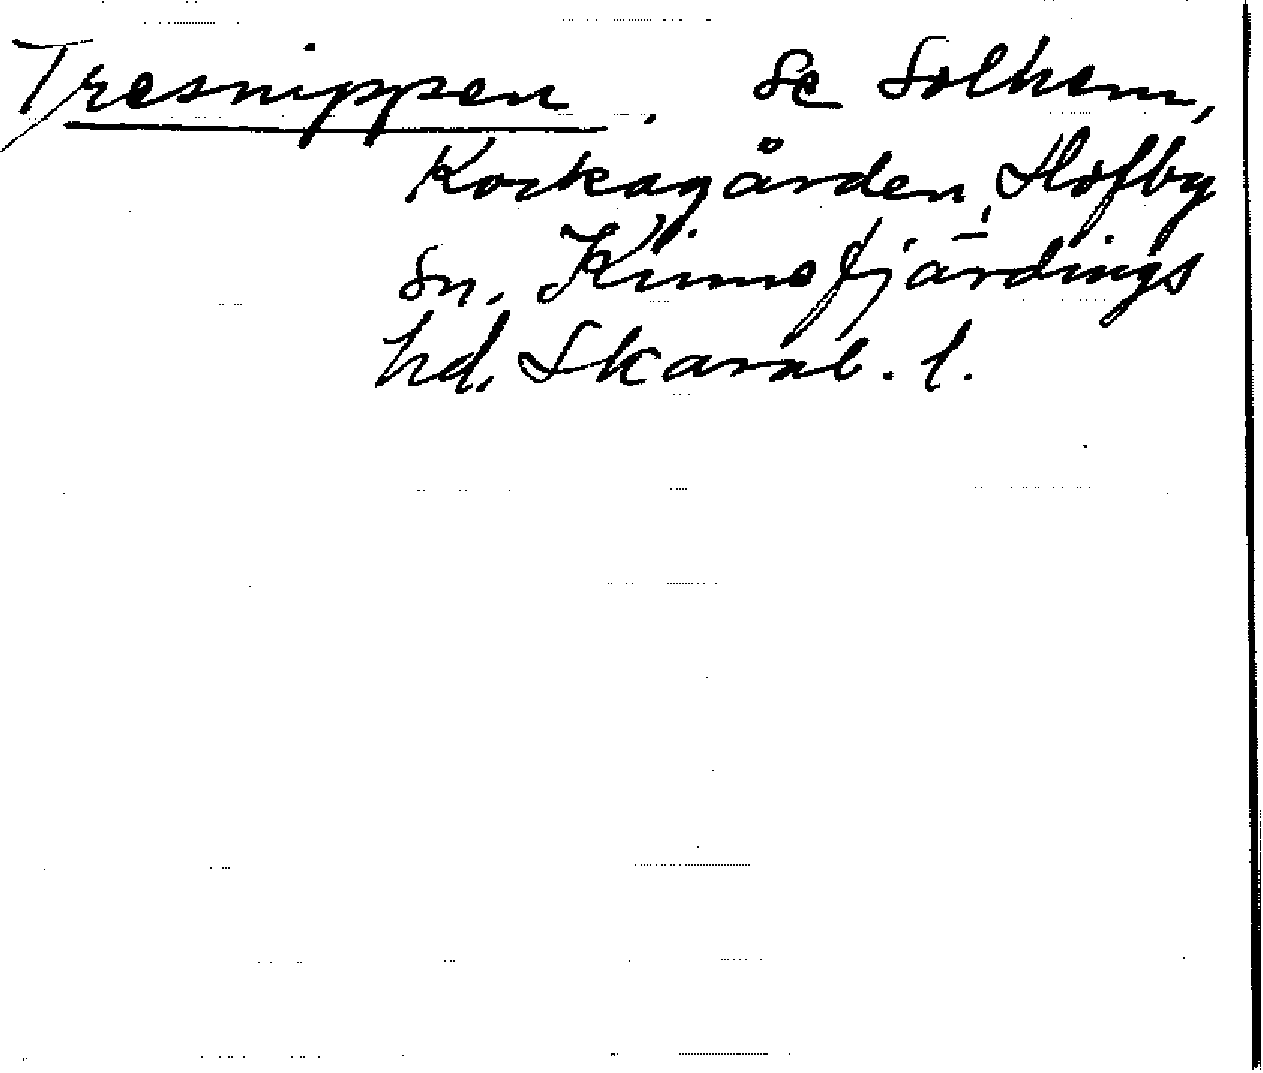 Tresnippen. Se Solhem,
Kockagården, Holfby
sn, Kinnefjärdings
hd, Skarab. l.